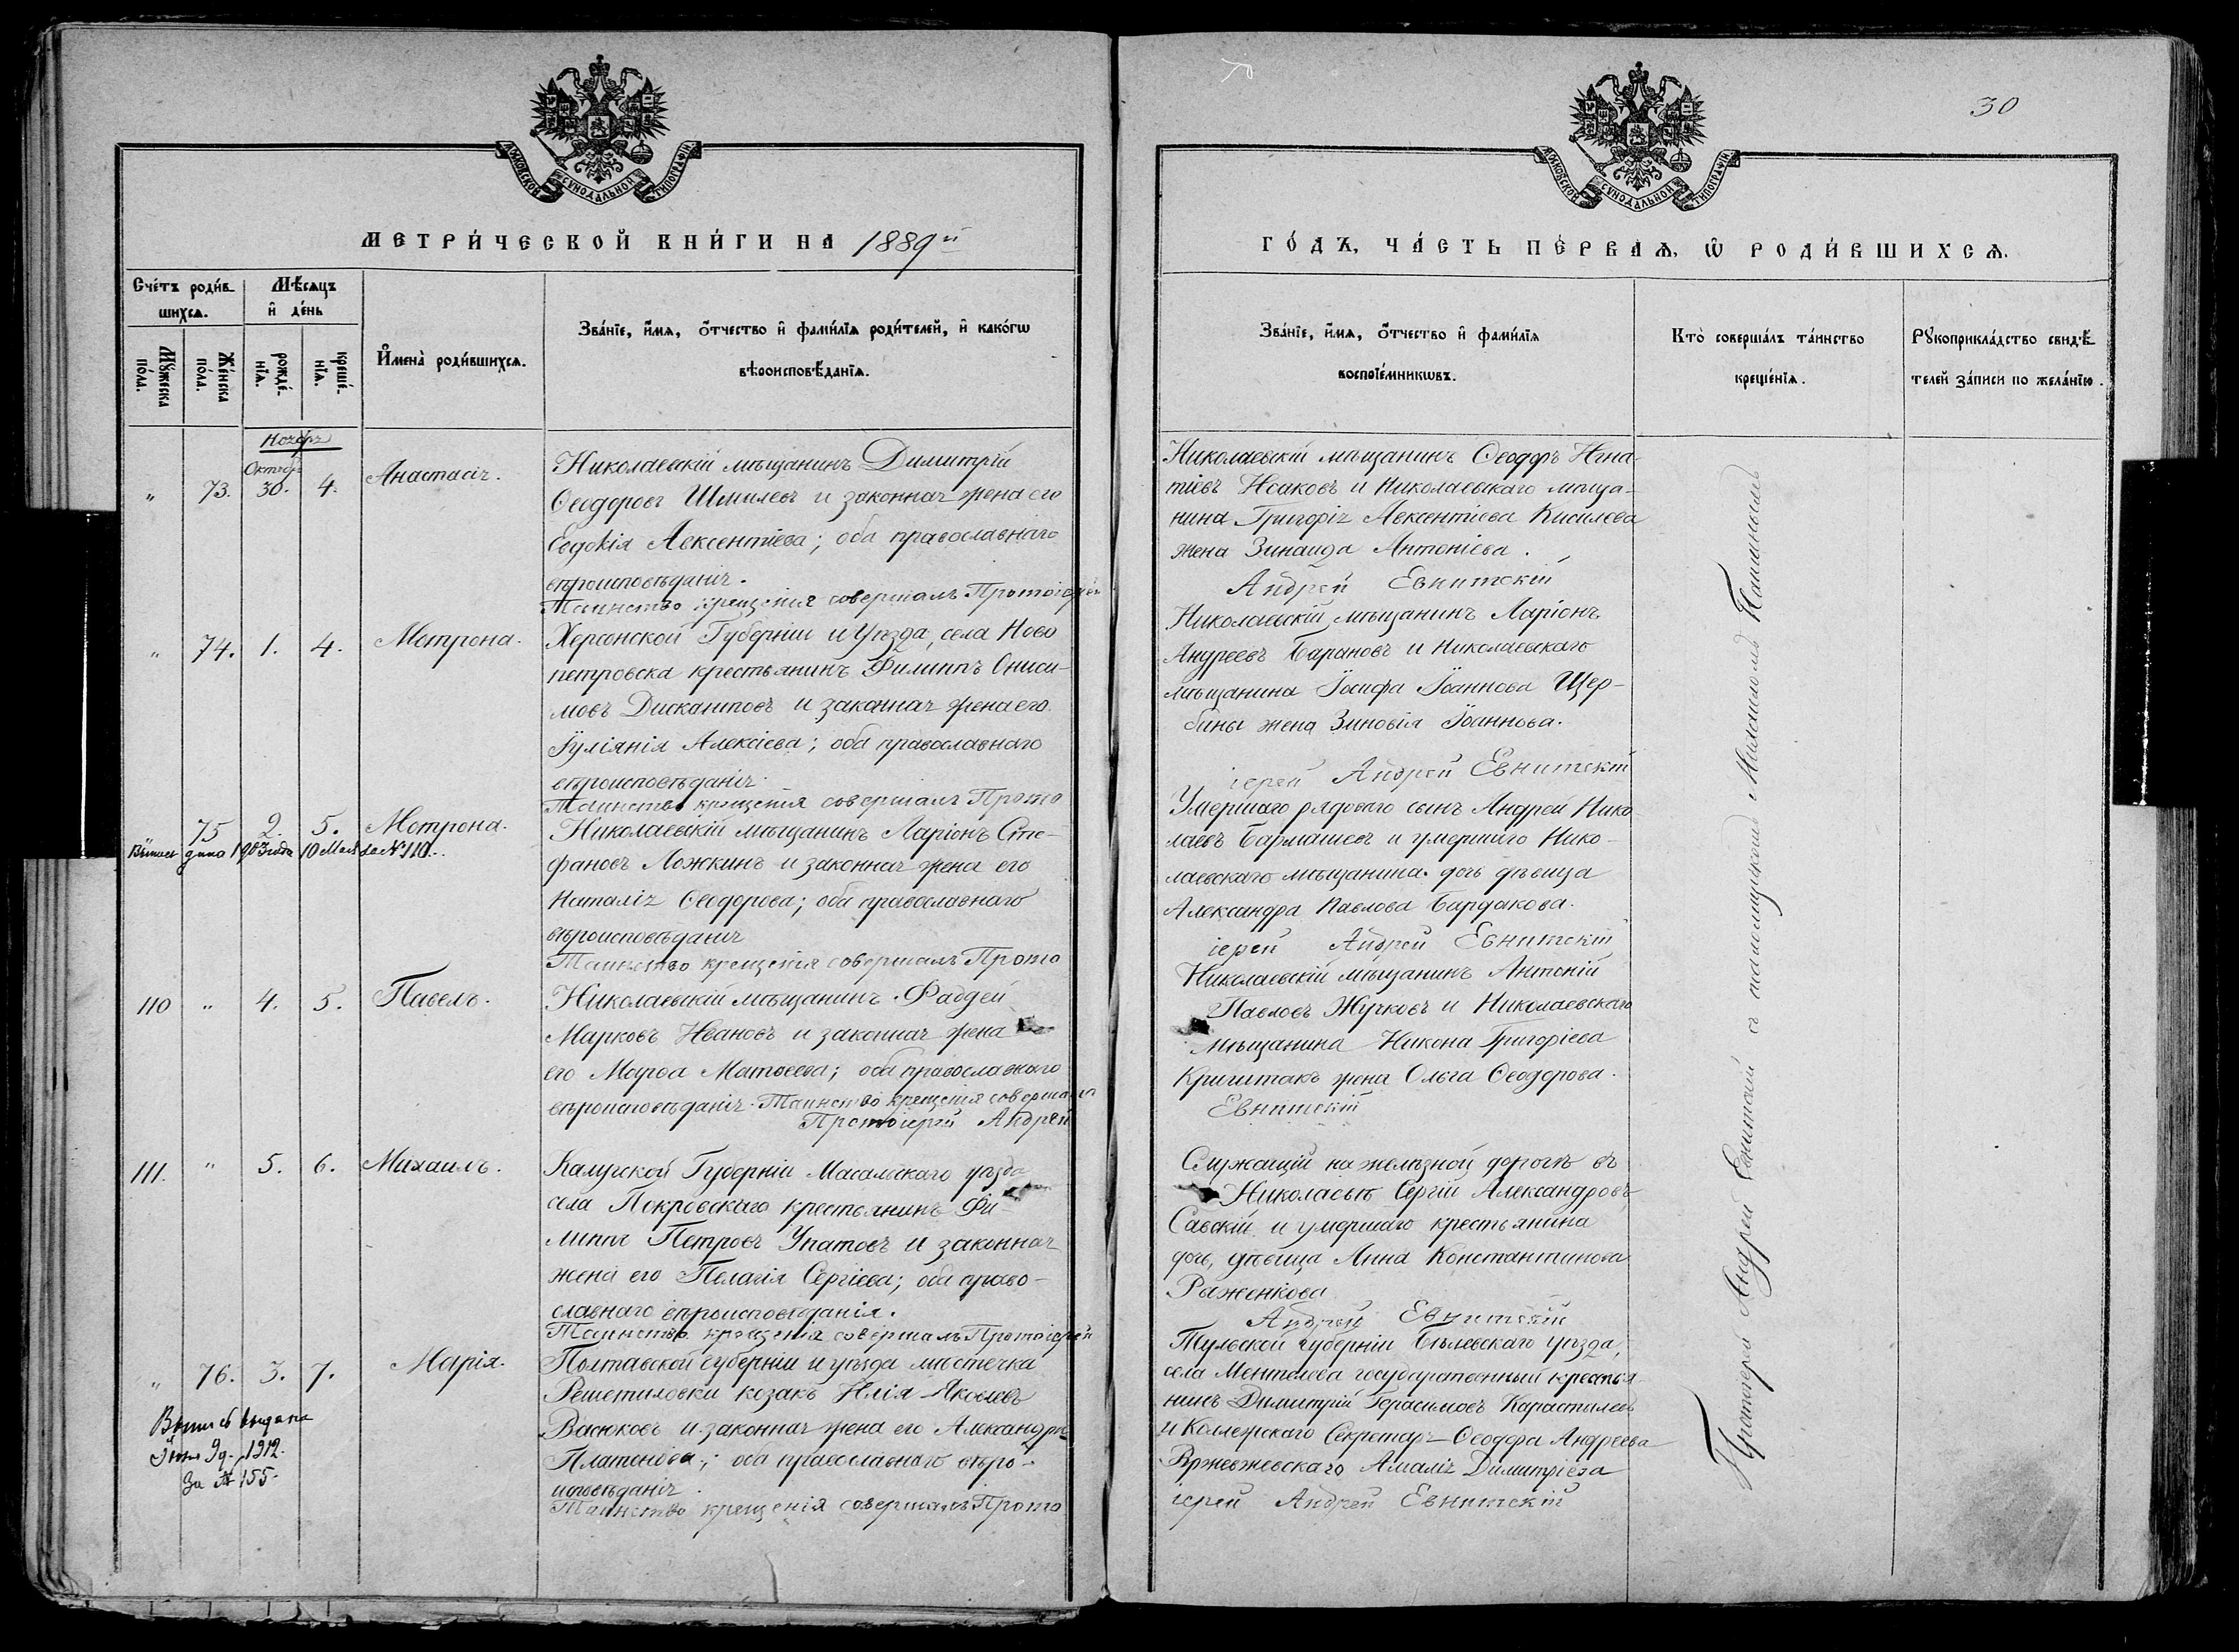 30
МОСКОВСКОЙ СѴНОДАЛЬНОЙ ТИПОГРАФІИ
МЕТРИ́ЧЕСКОЙ КНИ́ГИ НА 1889й
Сче́тъ роди́в-
шихся.
Мѣ́сяцъ
и҆ де́нь
Мꙋжеска по́ла.
Же́нска по́ла.
рожде́-
нїѧ.
креще́-
нїѧ.
И҆мена̀ роди́вшихсѧ.
Зва́нїе, и҆́мѧ, ѻ҆́тчество и҆ фами́лїѧ роди́телей, и҆ како́гѡ
вѣроисповѣ́данїѧ.
Ноябрь
"
73.
Октябр
30.
4.
Анастасія.
Николаевскій мѣщанинъ Димитрій
Ѳеодоровъ Шмилевъ и законная жена его
Евдокія Авксентіева; оба православнаго
вѣроисповѣданія.
Таинство крещенія совершалъ Протоіерей
"
74.
1.
4.
Мотрона.
Херсонской Губерніи и Уѣзда, села Ново
петровска крестьянинъ Филиппъ Ониси-
мовъ Дискантовъ и законная жена его
Іуліянія Алексіева; оба православнаго
вѣроисповѣданія.
Таинство крещенія совершалъ Прото
75
2.
5.
Мотрона.
дана 1903 года 10 Мая за №110.
Николаевскій мѣщанинъ Ларіонъ Сте-
фановъ Ложкинъ и законная жена его
Наталія Ѳеодорова; оба православнаго
вѣроисповѣданія
Таинство крещенія совершалъ Прото
110
"
4.
5.
Павелъ.
Николаевскій мѣщанинъ Фаддей
Марковъ Ивановъ и законная жена
его Марѳа Матѳеева; оба православнаго
вѣроисповѣданія. Таинство крещенія совершалъ
Протоіерей Андрей
111.
"
5.
6.
Михаилъ.
Калужской Губерніи Масальскаго уѣзда
села Покровскаго крестьянинъ Фи-
липпъ Петровъ Упатовъ и законная
жена его Пелагія Сергіева; оба право-
славнаго вѣроисповѣданія.
Таинство крещенія совершалъ Протоіерей
"
76.
3.
7.
Марія.
Выпись выдана
Іюня 9д. 1912.
За № 155.
Полтавской губерніи и уѣзда мѣстечка
Решетиловки козакъ Илія Яковлевъ
Васюковъ и законная жена его Александра
Платонова; оба православнаго вѣро-
исповѣданія.
Таинство крещенія совершалъ Прото
МОСКОВСКОЙ СѴНОДАЛЬНОЙ ТИПОГРАФІИ
ГО́ДЪ, ЧА́СТЬ ПЕ́РВАѦ, Ѡ҆ РОДИ́ВШИХСѦ.
Зва́нїе, и҆́мѧ, ѻ҆́тчество и҆ фами́лїѧ
воспрїе́мникѡвъ.
Кто̀ соверша́лъ та́инство
креще́нїѧ.
Рꙋкоприкла́дство свидѣ́-
телей за́писи по жела́нїю.
Николаевскій мѣщанинъ Ѳеодоръ Игна-
тіевъ Исаковъ и Николаевскаго мѣща-
нина Григорія Авксентіева Киселева
жена Зинаида Антоніева.
Андрей Евнитскій
Николаевскій мѣщанинъ Ларіонъ
Андреевъ Барановъ и Николаевскаго
мѣщанина Іосифа Іоаннова Щер-
бины жена Зиновія Іоаннова.
іерей Андрей Евнитскій
Умершаго рядоваго сынъ Андрей Нико
лаевъ и умершаго Нико-
лаевскаго мѣщанина дочь дѣвица
Александра Павлова Бардакова.
іерей Андрей Евнитскій
Николаевскій мѣщанинъ Антоній
Павловъ Жучковъ и Николаевскаго
мѣщанина Никона Григоріева
жена Ольга Ѳеодорова.
Евнитскій
Служащій на желѣзной дорогѣ въ
Николаевѣ Сергій Александровъ
Савскій и умершаго крестьянина
дочь, дѣвица Анна Константинова
Рыженкова
Андрей Евнитскій
Тульской губерніи Бѣлевскаго уѣзда,
села государственный крестья
нинъ Димитрій Герасимовъ
и Коллежскаго Секретаря Ѳеодора Андреева
Вржежевскаго Амалія Димитріева
іерей Андрей Евнитскій
Протоіерей Андрей Евнитскій съ псаломщикомъ Михаиломъ